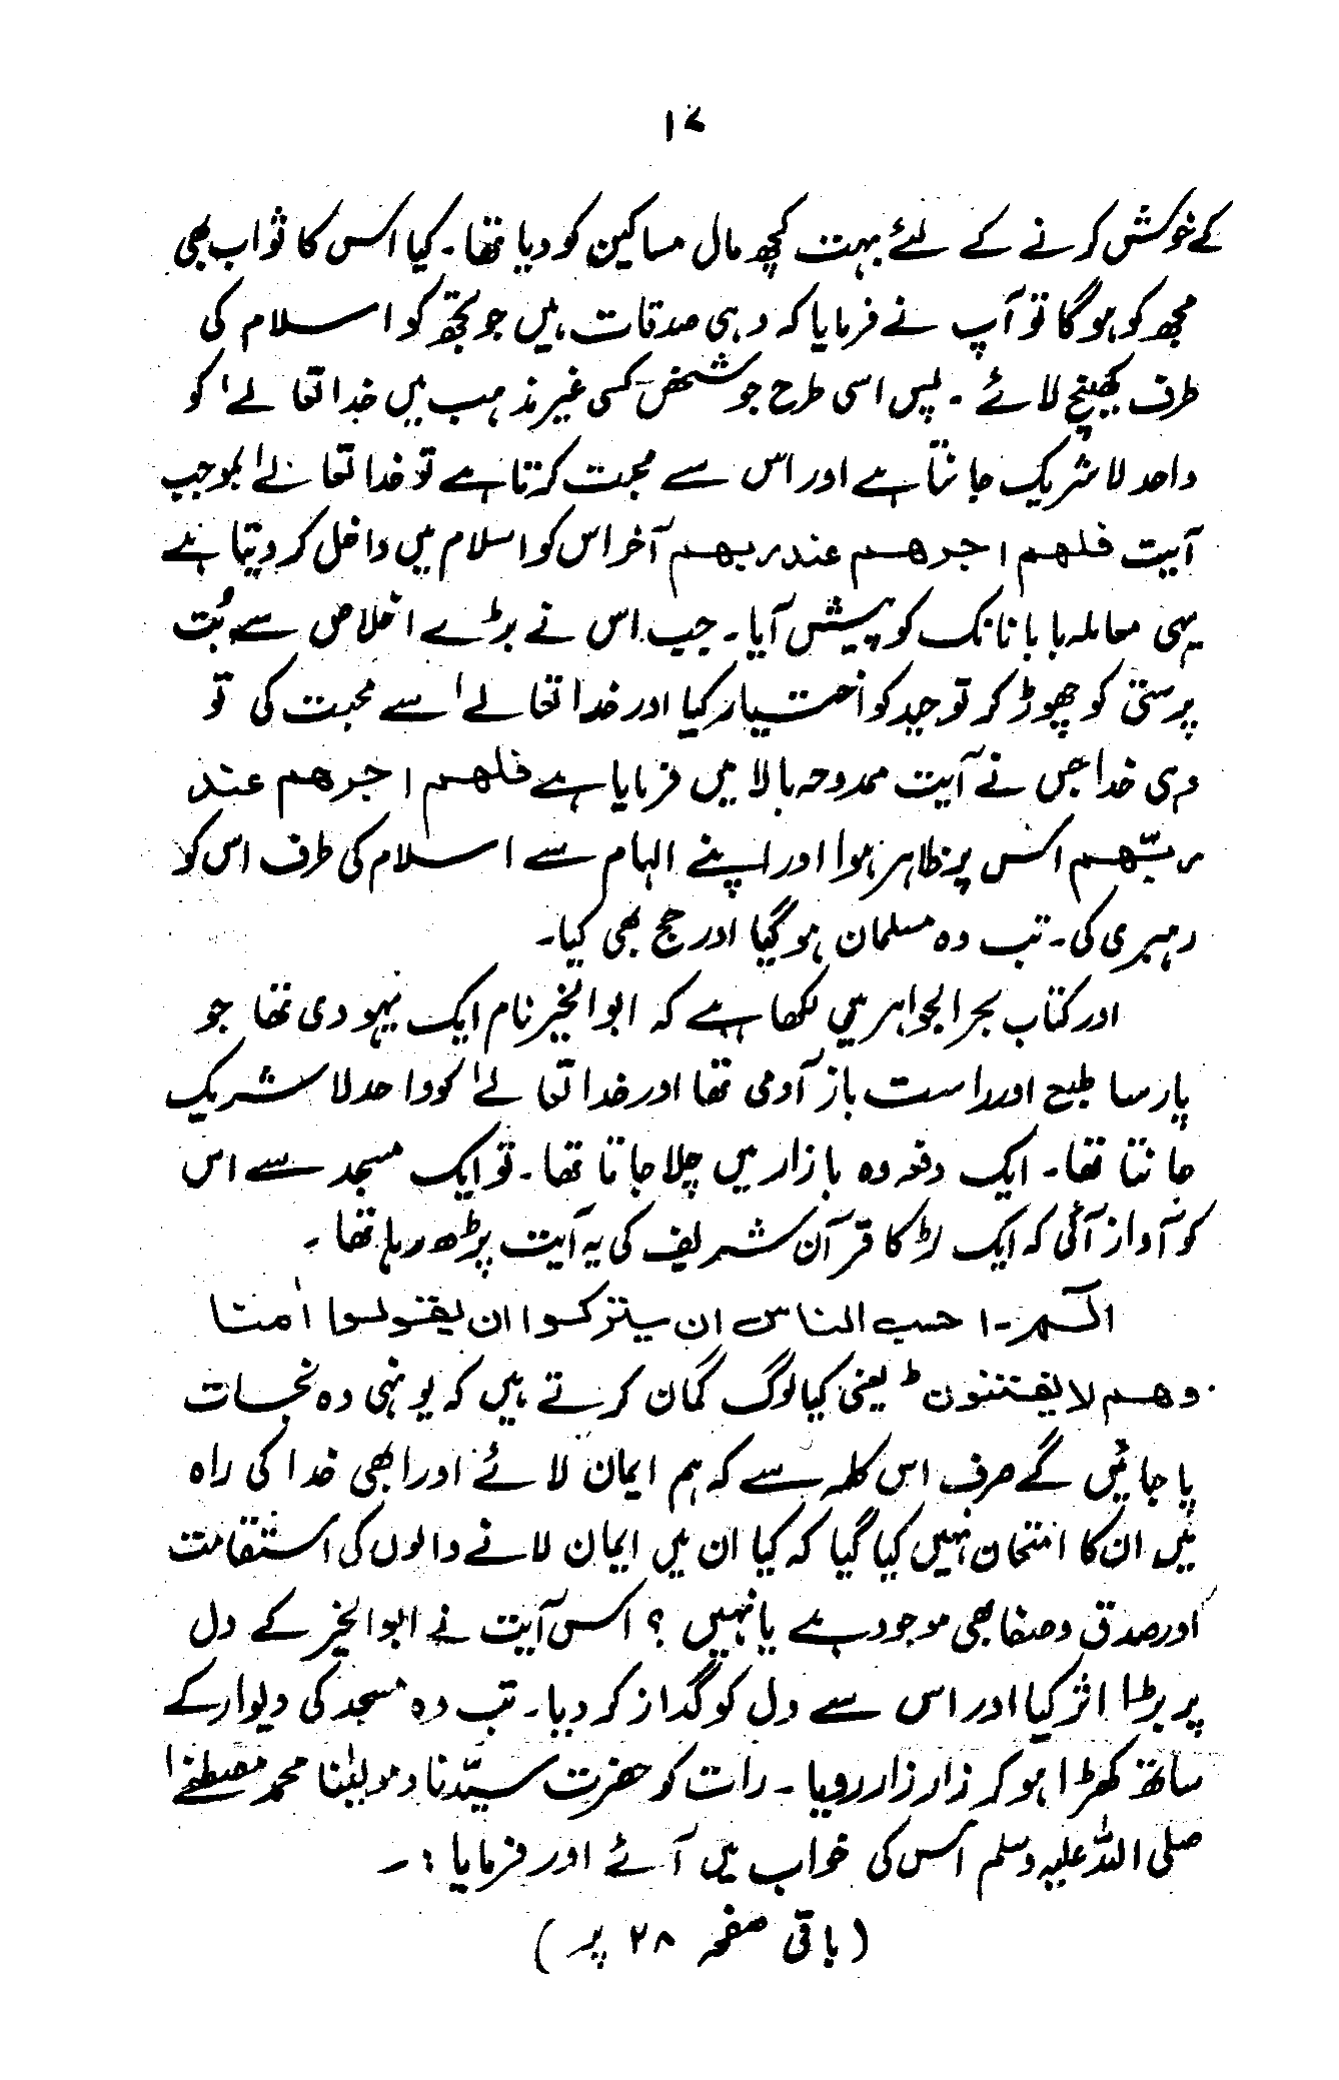 ۱۷
کے خوش کرنے کے لئے بہت کچھ مال مساکین کو دیا تھا۔ کیا اس کا ثواب بھی
مجھ کو ہوگا تو آپ نے فرمایا کہ وہی صدقات ہیں جو تجھ کو اسلام کی
طرف کھینچ لائے ۔ پس اسی طرح جو شخص کسی غیر مذہب میں خدا تعالےٰ کو
واحد لا شریک جانتا ہے اور اس سے محبت کرتا ہے تو خدا تعالےٰ بموجب
آیت فلھم اجرھم عند ربھم آخر اس کو اسلام میں داخل کر دیتا ہے
یہی معاملہ بابا نانک کو پیش آیا۔ جب اس نے بڑے اخلاص سے بُت
پرستی کو چھوڑ کر توحید کو اختیار کیا اور خدا تعالےٰ سے محبت کی تو
وہی خدا جس نے آیت ممدوحہ بالا میں فرمایا ہے فلھم اجرھم عند
ربّھم اس پر ظاہر ہوا اور اپنے الہام سے اسلام کی طرف اس کو
رہبری کی۔ تب وہ مسلمان ہو گیا اور حج بھی کیا۔
اور کتاب بحر الجواہر میں لکھا ہے کہ ابو الخیر نام ایک یہودی تھا جو
پارسا طبع اور راست باز آدمی تھا اور خدا تعالےٰ کو واحد لا شریک
جانتا تھا۔ ایک دفعہ وہ بازار میں چلا جاتا تھا۔ تو ایک مسجد سے اس
کو آواز آئی کہ ایک لڑکا قرآن شریف کی یہ آیت پڑھ رہا تھا ۔
الٓـمّٓ ۔ احسب الناس ان یترکوا ان یقولوا اٰمنا
وھم لا یفتنون ؕ یعنی کیا لوگ گمان کرتے ہیں کہ یونہی وہ نجات
پا جائیں گے صرف اس کلمہ سے کہ ہم ایمان لائے اور ابھی خدا کی راہ
میں ان کا امتحان نہیں کیا گیا کہ کیا ان میں ایمان لانے والوں کی استقامت
اور صدق و صفا بھی موجود ہے یا نہیں ؟ اس آیت نے ابو الخیر کے دل
پر بڑا اثر کیا اور اس سے دل کو گداز کر دیا۔ تب وہ مسجد کی دیوار کے
ساتھ کھڑا ہو کر زار زار رویا ۔ رات کو حضرت سیّدنا و مولیٰنا محمد مصطفےٰ
صلی اللہ علیہ وسلم اس کی خواب میں آئے اور فرمایا :۔
(باقی صفحہ ۲۸ پر)